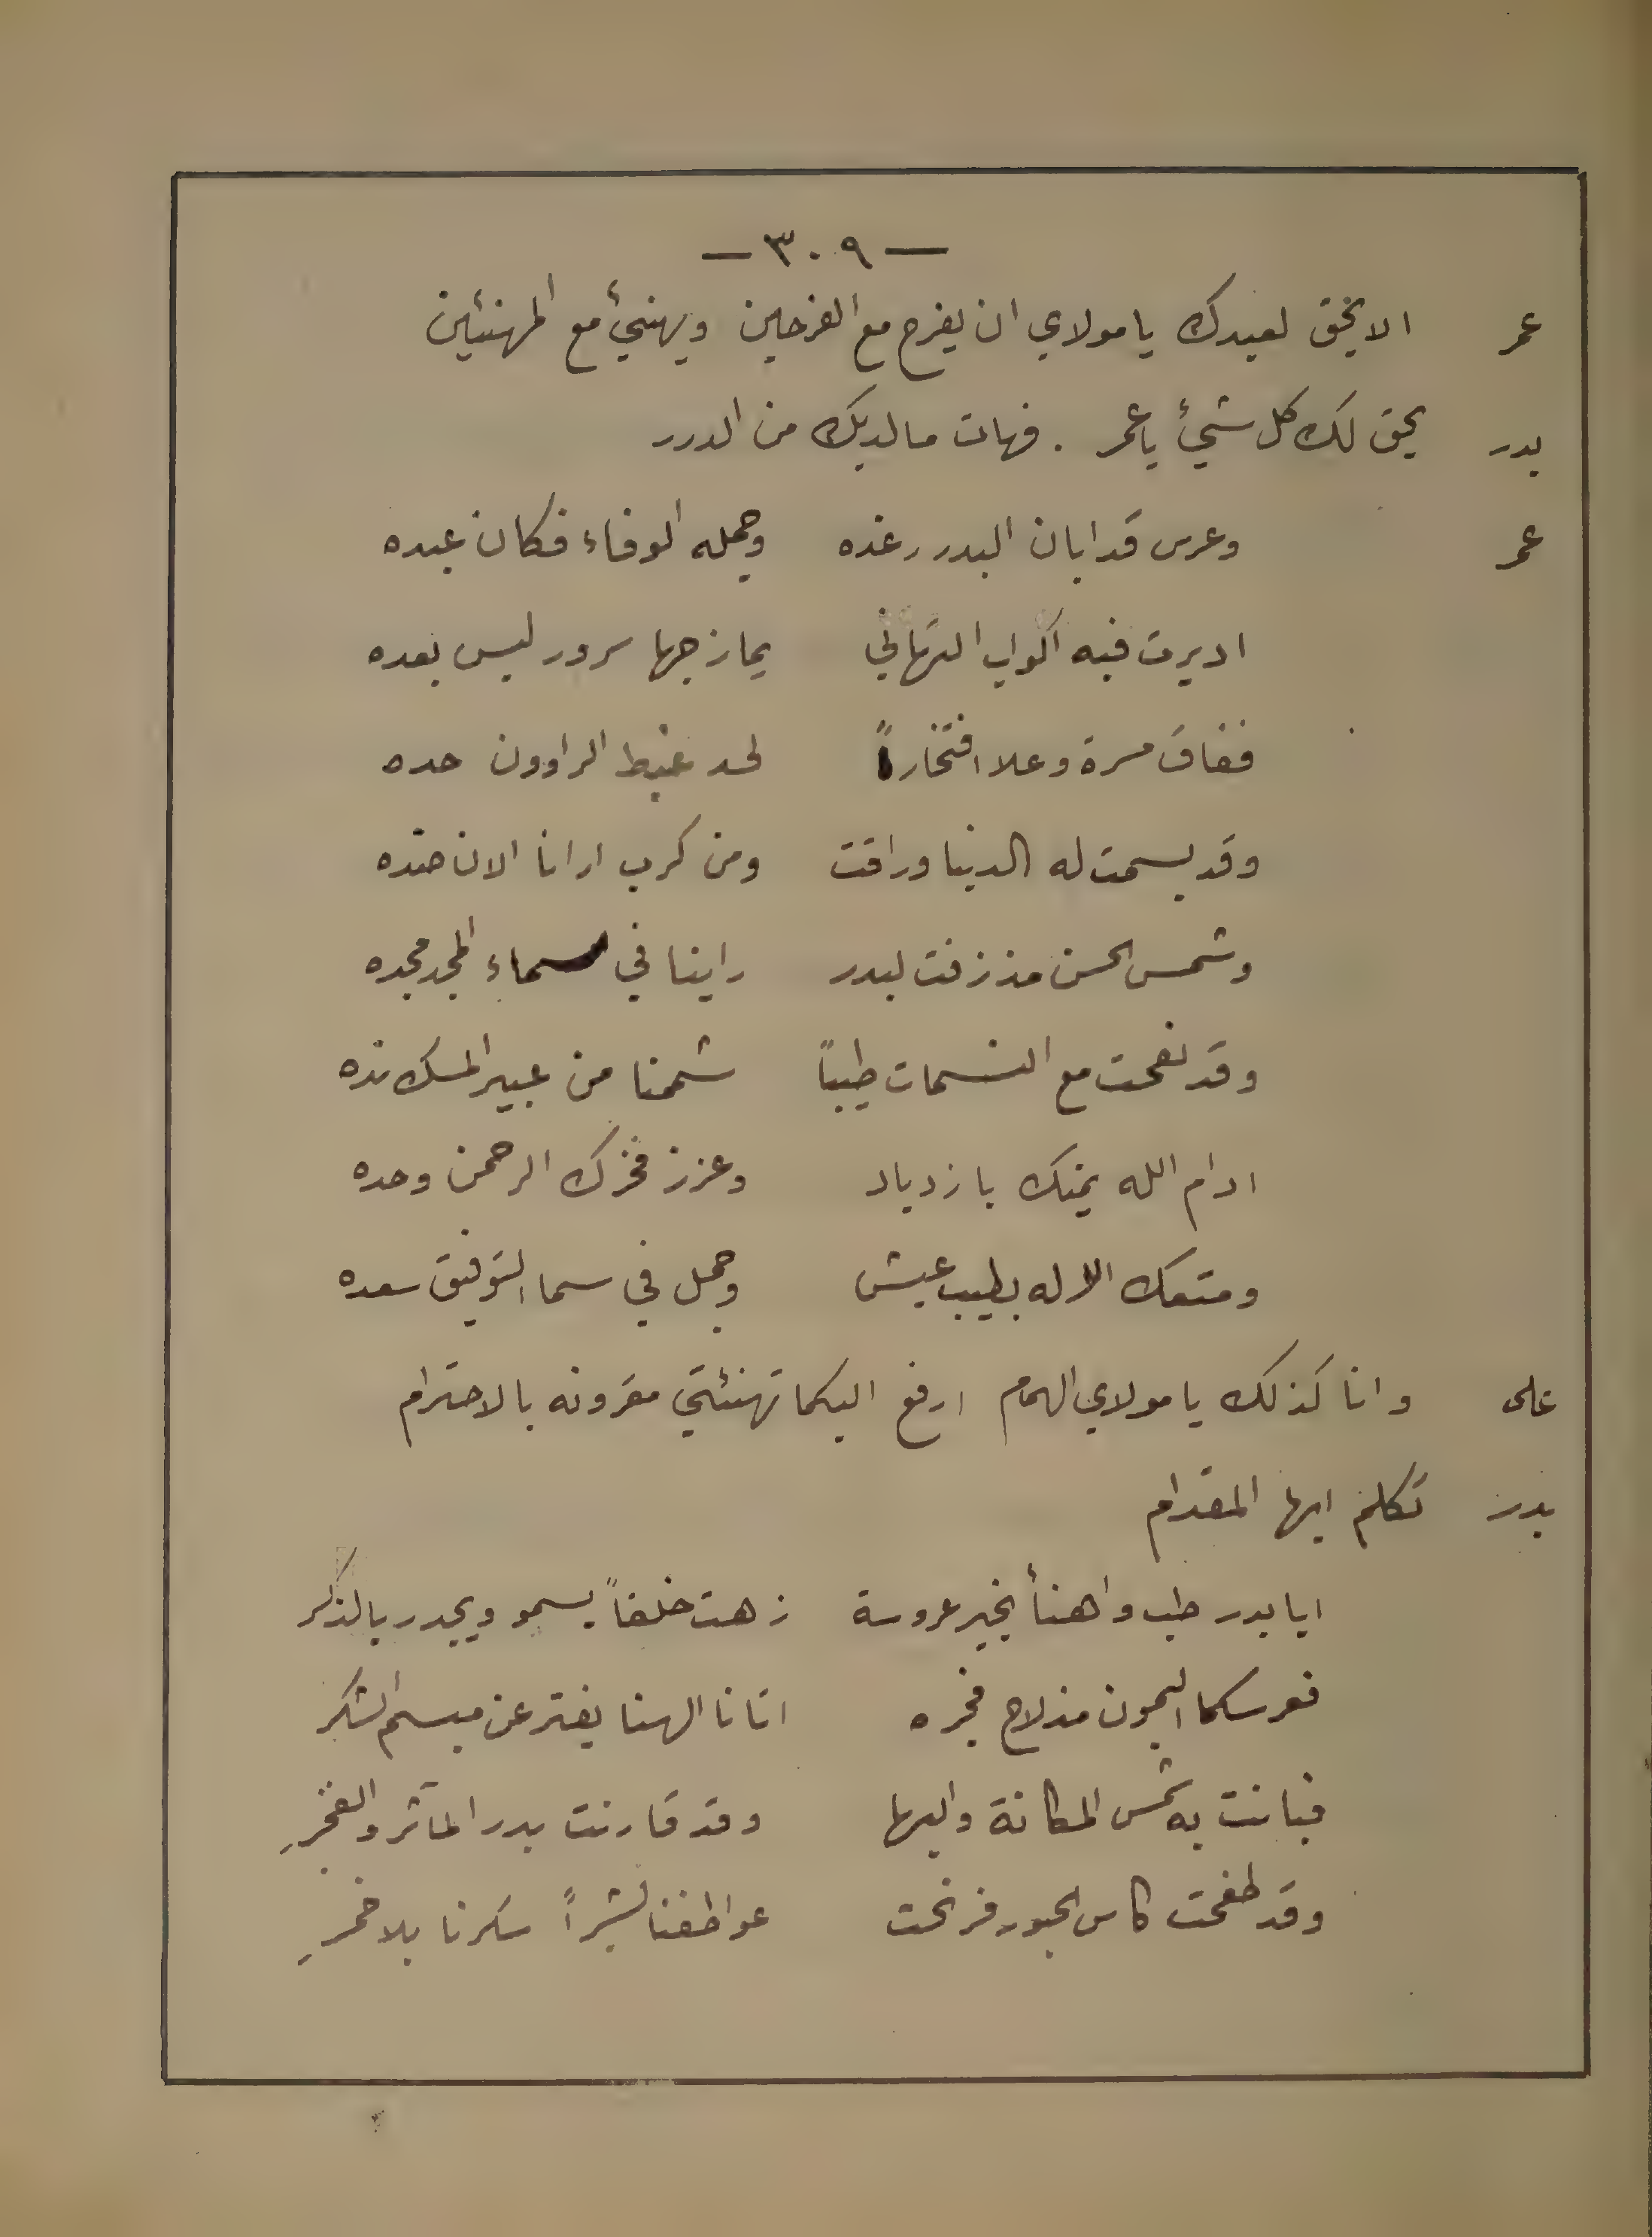 — ٣٠٩ —
عمر الا يحق لعبدك يا مولاي ان يفرح مع الفرحين ويهنئ مع المهنئين
بدر يحق لك كل شيئ يا عمر . فهات ما لديك من الدرر
عمر وعرس قد ابان البدر رغده وجمله الوفاء فكان عبده
اديرت فيه اكواب التهاني يمازجها سرور ليس بعده
ففاق مسرة وعلا افتخاراً لحد غبط الراوون حده
وقد بسمت له الدنيا وراقت ومن كرب ارانا الان ضده
وشمس الحسن مذ زفت لبدر راينا في سماء المجد مجده
وقد نفحت مع النسمات طيباً شممنا من عبير المسك نده
ادام الله يمنك بازدياد وعزز فخرك الرحمن وحده
ومتعك الاله بطيب عيش وجمل في سما التوفيق سعده
على وانا كذلك يا مولاي الهمام ارفع اليكما تهنئتي مقرونه بالاحترام
بدر تكلم ايها المقدام
ايا بدر طب واهنأ بخير عروسة زهت خلقاً يسمو ويجدر بالذكر
فعرسكما الميمون مذ لاح فجره اتانا الهنا يفتر عن مبسم الشكر
فبانت به شمس المكانة والبها وقد قارنت بدر المآثر والفخرِ
وقد طفحت كاس الحبور فرنحت عواطفنا بشراً سكرنا بلا خمرِ